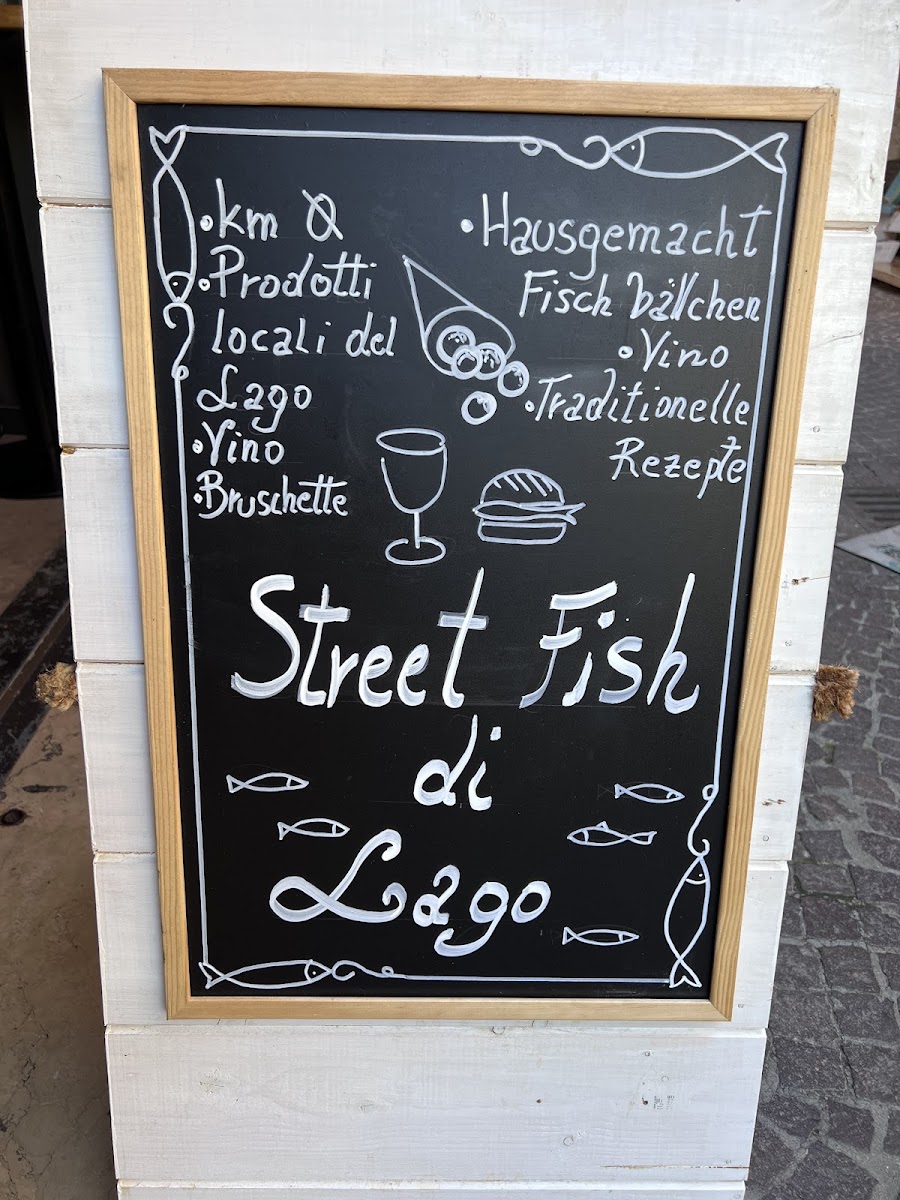 •km 0
•Prodotti
locali del
Lago
•Vino
•Bruschette
•Hausgemacht
Fisch bällchen
•Vino
•Traditionelle
Rezepte
Street Fish
di
Lago